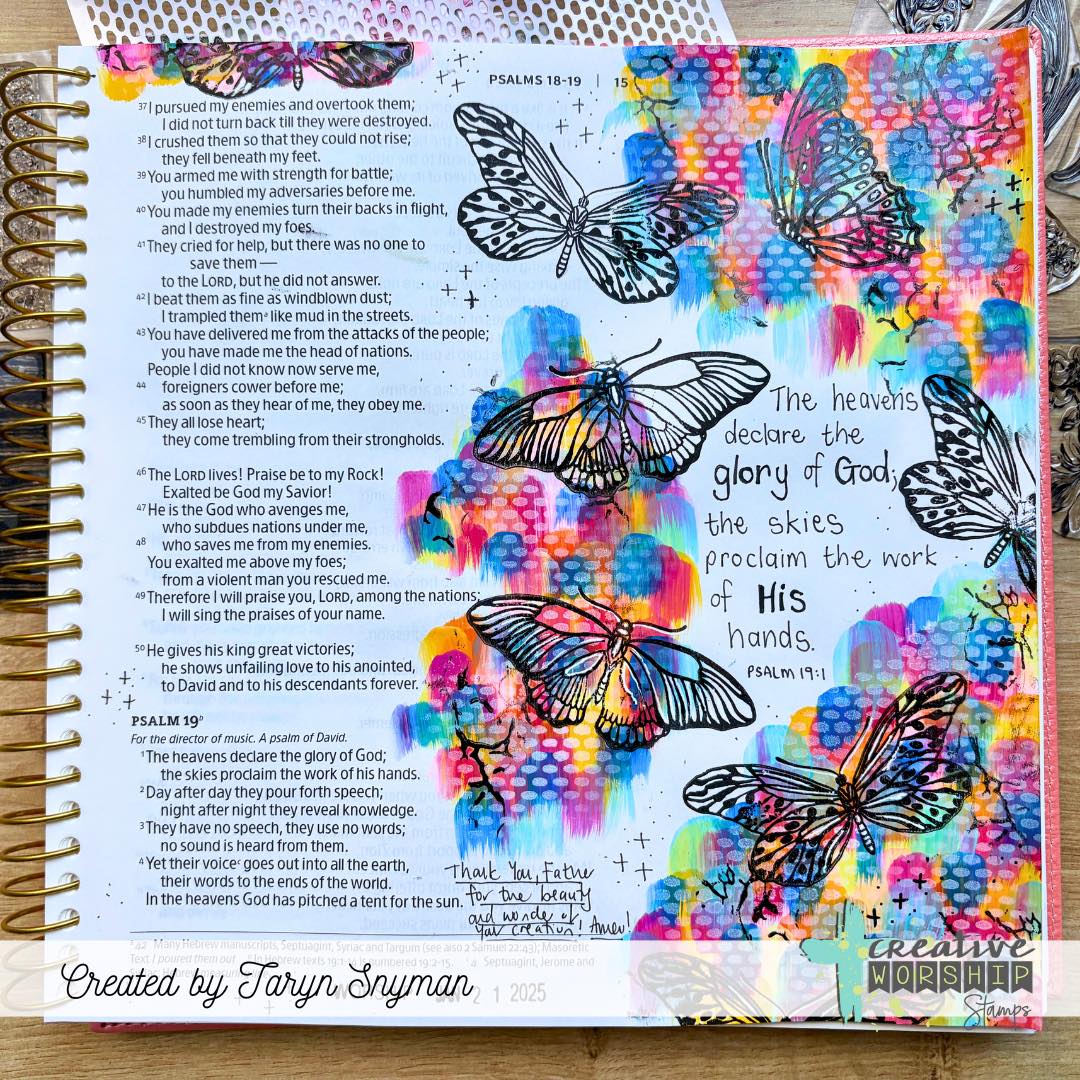 PSALMS 18-19 | 15
37 I pursued my enemies and overtook them;
I did not turn back till they were destroyed.
38 I crushed them so that they could not rise;
they fell beneath my feet.
39 You armed me with strength for battle;
you humbled my adversaries before me.
40 You made my enemies turn their backs in flight,
and I destroyed my foes.
41 They cried for help, but there was no one to
save them —
to the LORD, but he did not answer.
42 I beat them as fine as windblown dust;
I trampled themᵃ like mud in the streets.
43 You have delivered me from the attacks of the people;
you have made me the head of nations.
People I did not know now serve me,
44 foreigners cower before me;
as soon as they hear of me, they obey me.
45 They all lose heart;
they come trembling from their strongholds.
46 The LORD lives! Praise be to my Rock!
Exalted be God my Savior!
47 He is the God who avenges me,
who subdues nations under me,
48 who saves me from my enemies.
You exalted me above my foes;
from a violent man you rescued me.
49 Therefore I will praise you, LORD, among the nations;
I will sing the praises of your name.
50 He gives his king great victories;
he shows unfailing love to his anointed,
to David and to his descendants forever.
PSALM 19ᵇ
For the director of music. A psalm of David.
1 The heavens declare the glory of God;
the skies proclaim the work of his hands.
2 Day after day they pour forth speech;
night after night they reveal knowledge.
3 They have no speech, they use no words;
no sound is heard from them.
4 Yet their voiceᶜ goes out into all the earth,
their words to the ends of the world.
In the heavens God has pitched a tent for the sun.
The heavens
declare the
glory of God;
the skies
proclaim the work
of His
hands.
PSALM 19:1
Thank You, Father
for the beauty
and wonder of
Your creation! Amen!
ᵃ 42 Many Hebrew manuscripts, Septuagint, Syriac and Targum (see also 2 Samuel 22:43); Masoretic
Text I poured them out ᵇ In Hebrew texts 19:1-14 is numbered 19:2-15. ᶜ 4 Septuagint, Jerome and
Created by Taryn Snyman
21 2025
creative
WORSHIP
Stamps